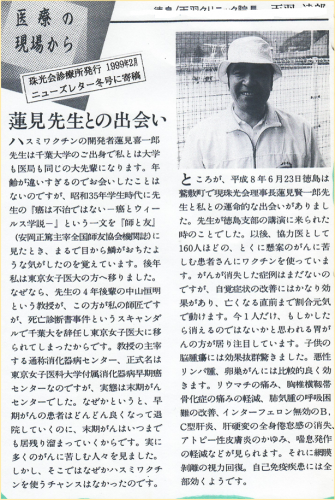 医療の
現場から
珠光会診療所発行 1999年2月
ニューズレター冬号に寄稿
蓮見先生との出会い
ハスミワクチンの開発者蓮見喜一郎
先生は千葉大学のご出身で私とは大学
も医局も同じの大先輩になります。年
齢が違いすぎるのでお会いしたことは
ないのですが、昭和35年学生時代に先
生の『癌は不治ではない―癌とウィー
ルス学説―』という一文を『師と友』
(安岡正篤主宰全国師友協会機関誌)に
見たとき、まるで目から鱗がおちたよ
うな気がしたのを覚えています。後年
私は東京女子医大の方へ移りました。
なぜなら、先生の4年後輩の中山恒明
という教授が、この方が私の師匠です
が、死亡診断書事件というスキャンダ
ルで千葉大を辞任し東京女子医大に移
られてしまったからです。教授の主宰
する通称消化器病センター、正式名は
東京女子医科大学付属消化器病早期癌
センターなのですが、実態は末期がん
センターでした。なぜかというと、早
期がんの患者はどんどん良くなって退
院していくのに、末期がんはいつまで
も居残り溜まっていくからです。実に
多くのがんに苦しむ人々を見ました。
しかし、そこではなぜかハスミワクチ
ンを使うチャンスはなかったのです。
ところが、平成8年6月23日徳島は
鷲敷町で現珠光会理事長蓮見賢一郎先
生と私との運命的な出会いがありまし
た。先生が徳島支部の講演に来られた
時のことでした。以後、協力医として
160人ほどの、とくに懸案のがんに苦
しむ患者さんにワクチンを使っていま
す。がんが消失した症例はまだないの
ですが、自覚症状の改善にはかなり効
果があり、亡くなる直前まで割合元気
で動けます。今1人だけ、もしかした
ら消えるのではないかと思われる胃が
んの方が居り注目しています。子供の
脳腫瘍には効果抜群驚きました。悪性
リンパ腫、卵巣がんには比較的良く効
きます。リウマチの痛み、胸椎横靱帯
骨化症の痛みの軽減、肺気腫の呼吸困
難の改善、インターフェロン無効のB、
C型肝炎、肝硬変の全身倦怠感の消失、
アトピー性皮膚炎のかゆみ、喘息発作
の軽減などが見られます。それに網膜
剥離の視力回復。自己免疫疾患には全
部効くようです。